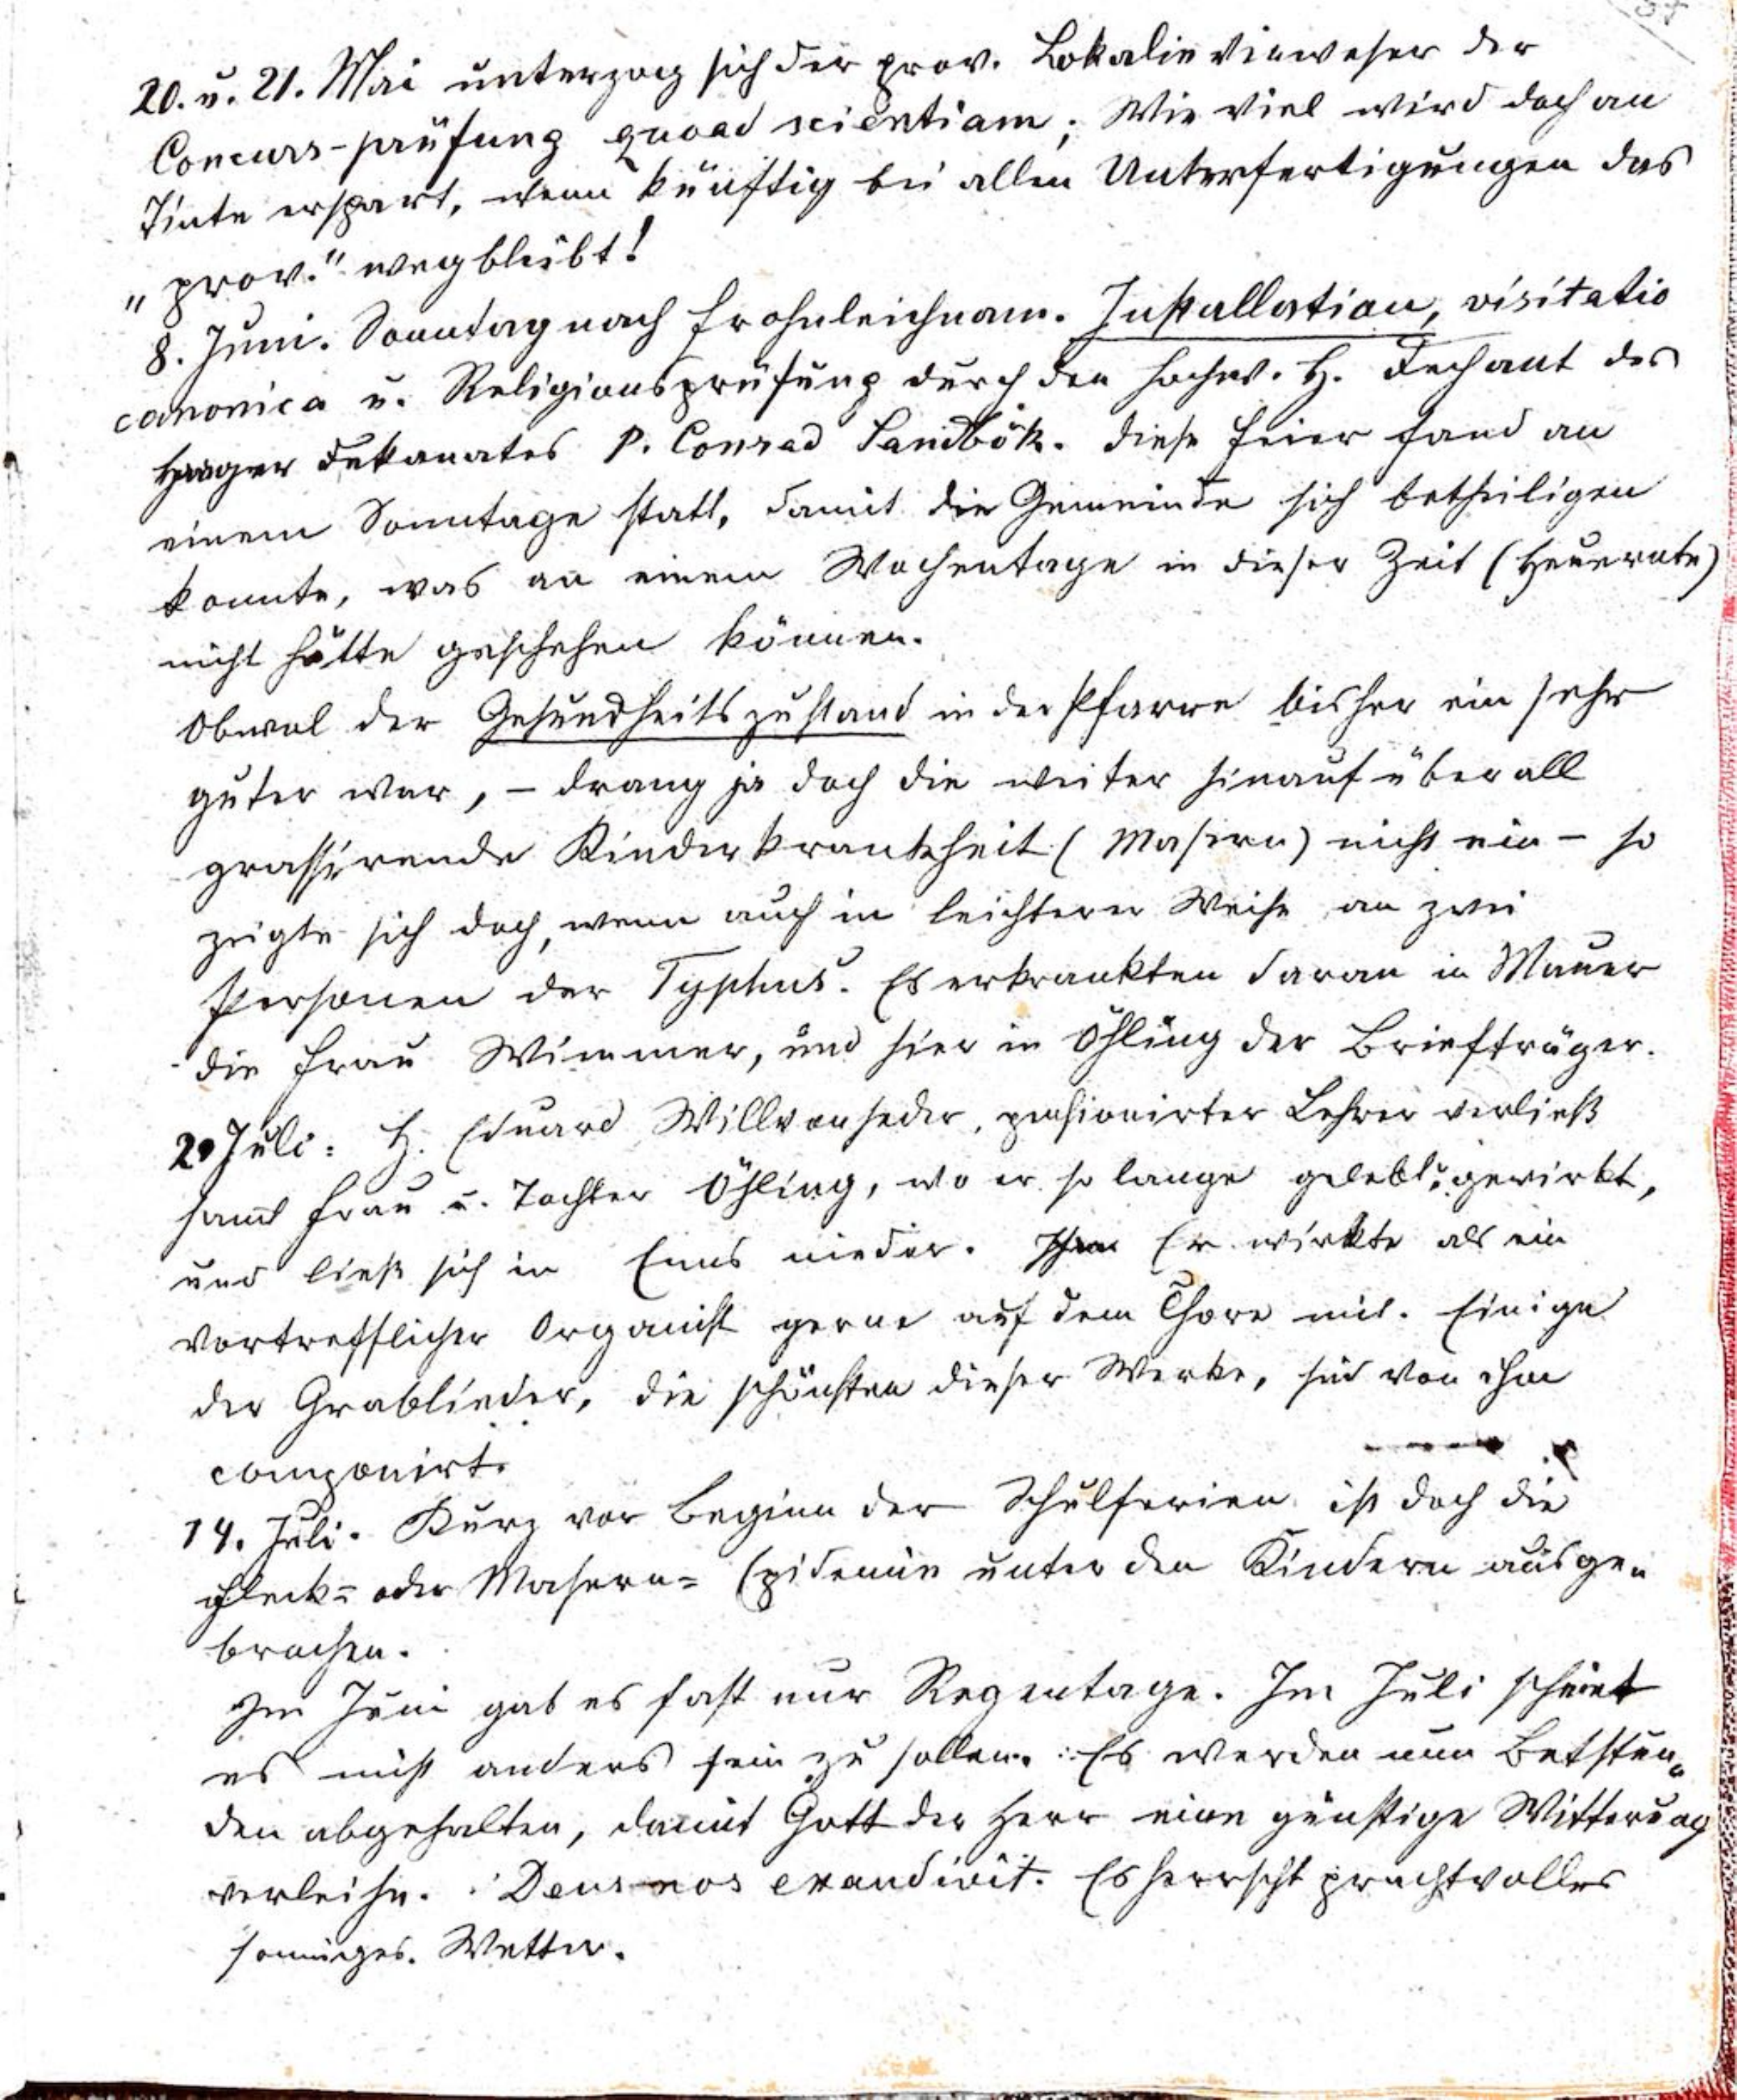 20. u. 21. Mai unterzog sich der prov. Lokalieverweser der
Concurs-prüfung quoad scientiam; Wie viel wird doch an
Tinte erspart, wenn künftig bei allen Unterfertigungen das
„prov." wegbleibt!
8. Juni. Sonntag nach Frohnleichnam. Installation, visitatio
canonica u. Religionsprüfung durch den hochw. H. Dechant des
Haager Dekanates P. Conrad Sandbök. Diese Feier fand an
einem Sonntage statt, damit die Gemeinde sich betheiligen
konnte, was an einem Wochentage in dieser Zeit (Heuernte)
nicht hätte geschehen können.
Obwol der Gesundheitszustand in der Pfarre bisher ein sehr
guter war, – drang ja doch die weiter hinauf überall
grassirende Kinderkrankheit (Masern) nicht ein – so
zeigte sich doch, wenn auch in leichterer Weise an zwei
Personen der Typhus. Es erkrankten daran in Mauer
die Frau Wimmer, und hier in Öhling der Briefträger.
2. Juli: H. Eduard Willvonseder, pensionirter Lehrer verließ
samt Frau u. Tochter Öhling, wo er so lange gelebt u. gewirkt,
und ließ sich in Enns nieder. Er wirkte als ein
vortrefflicher Organist gerne auf dem Chore mit. Einige
der Grablieder, die schönsten dieser Werke, sind von ihm
componirt.
14. Juli. Kurz vor Beginn der Schulferien ist doch die
Fleck= oder Masern= Epidemie unter den Kindern ausge„
brochen.
Im Juni gab es fast nur Regentage. Im Juli scheint
es nicht anders sein zu sollen. Es werden nun Betstun„
den abgehalten, damit Gott der Herr eine günstige Witterung
verleihe. Deus nos exaudivit. Es herrscht prachtvolles
sonniges Wetter.